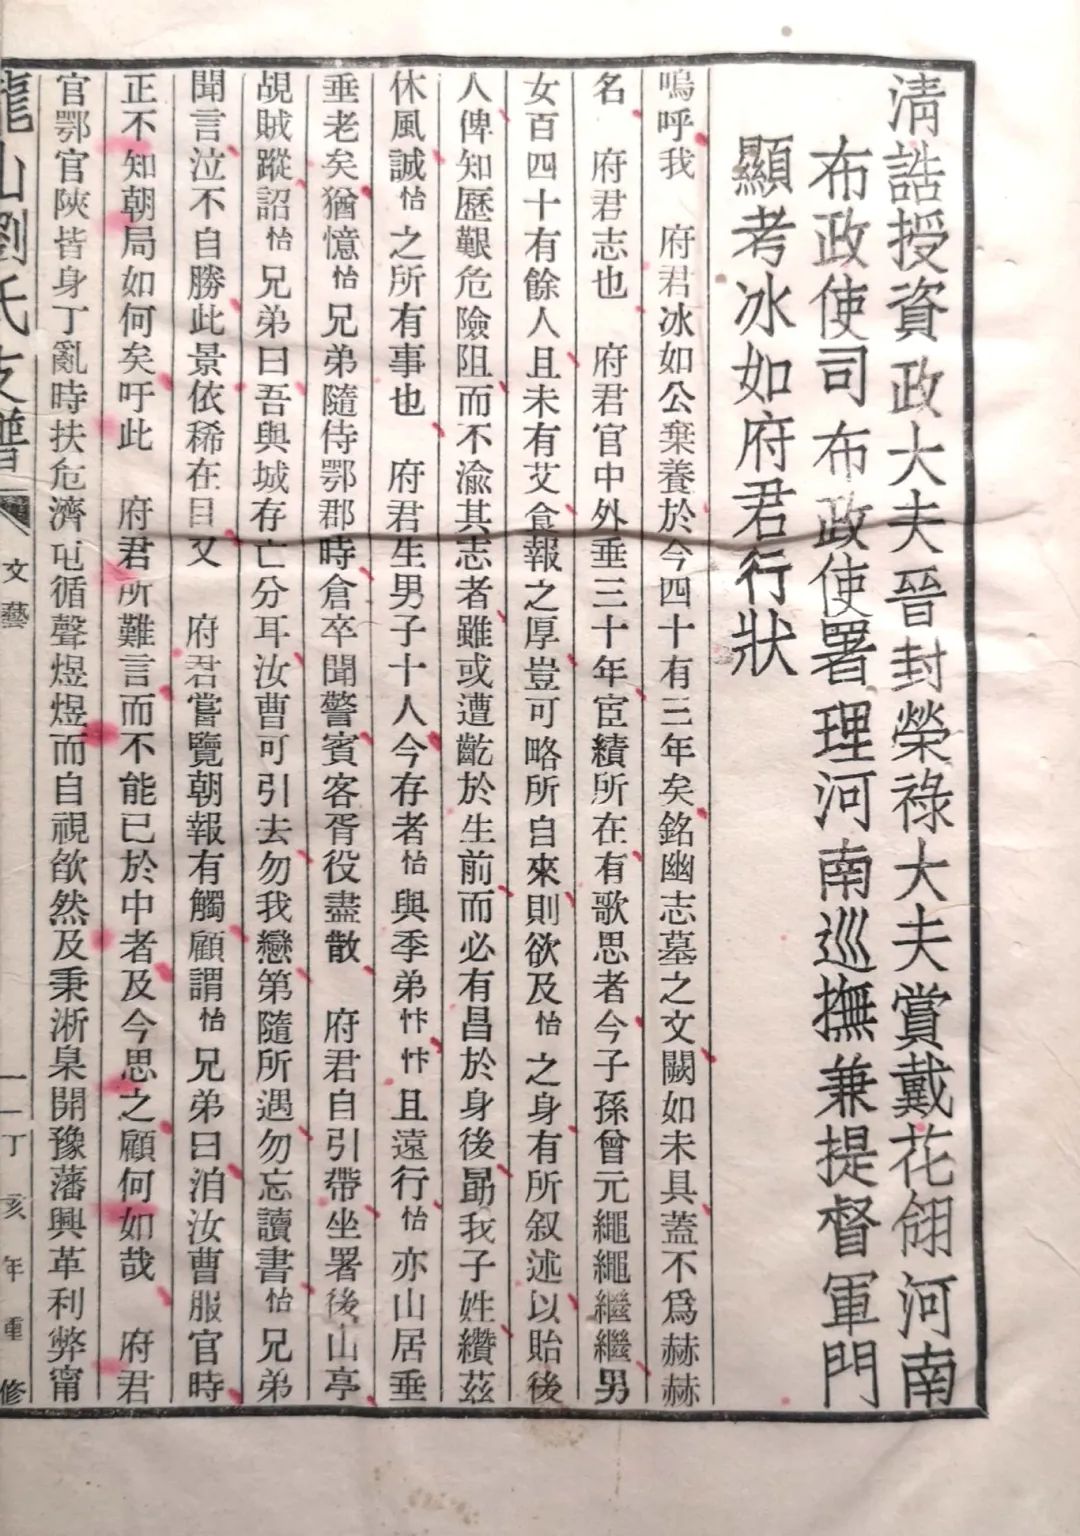 清誥授資政大夫晉封榮祿大夫賞戴花翎河南
布政使司布政使署理河南巡撫兼提督軍門
顯考冰如府君行狀
嗚呼我　府君冰如公棄養於今四十有三年矣銘幽志墓之文闕如未具蓋不爲赫赫
名　府君志也　府君官中外垂三十年宦績所在有歌思者今子孫曾元繩繩繼繼男
女百四十有餘人且未有艾食報之厚豈可略所自來則欲及怡之身有所叙述以貽後
人俾知歷艱危險阻而不渝其志者雖或遭齕於生前而必有昌於身後勗我子姓纘茲
休風誠怡之所有事也　府君生男子十人今存者怡與季弟忭忭且遠行怡亦山居垂
垂老矣猶憶怡兄弟隨侍鄂郡時倉卒聞警賓客胥役盡散　府君自引帶坐署後山亭
覘賊蹤詔怡兄弟曰吾與城存亡分耳汝曹可引去勿我戀第隨所遇勿忘讀書怡兄弟
聞言泣不自勝此景依稀在目又　府君嘗覽朝報有觸顧謂怡兄弟曰洎汝曹服官時
正不知朝局如何矣吁此　府君所難言而不能已於中者及今思之顧何如哉　府君
官鄂官陝皆身丁亂時扶危濟屯循聲煜煜而自視欿然及秉淅臬開豫藩興革利弊甯
龍山劉氏支譜　文藝　一　丁亥年重修